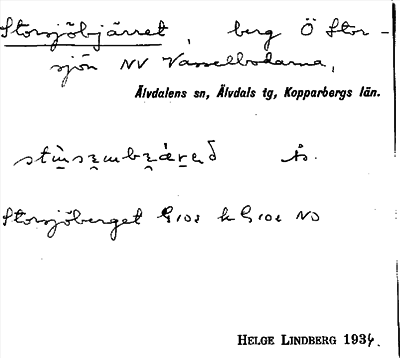 Storsjöbjärret, berg Ö Stor-
sjön NV Vasselbodarna,
Älvdalens sn, Älvdals tg, Kopparbergs län.
Storsjöberget G102 h G102 NO
HELGE LINDBERG 1934.